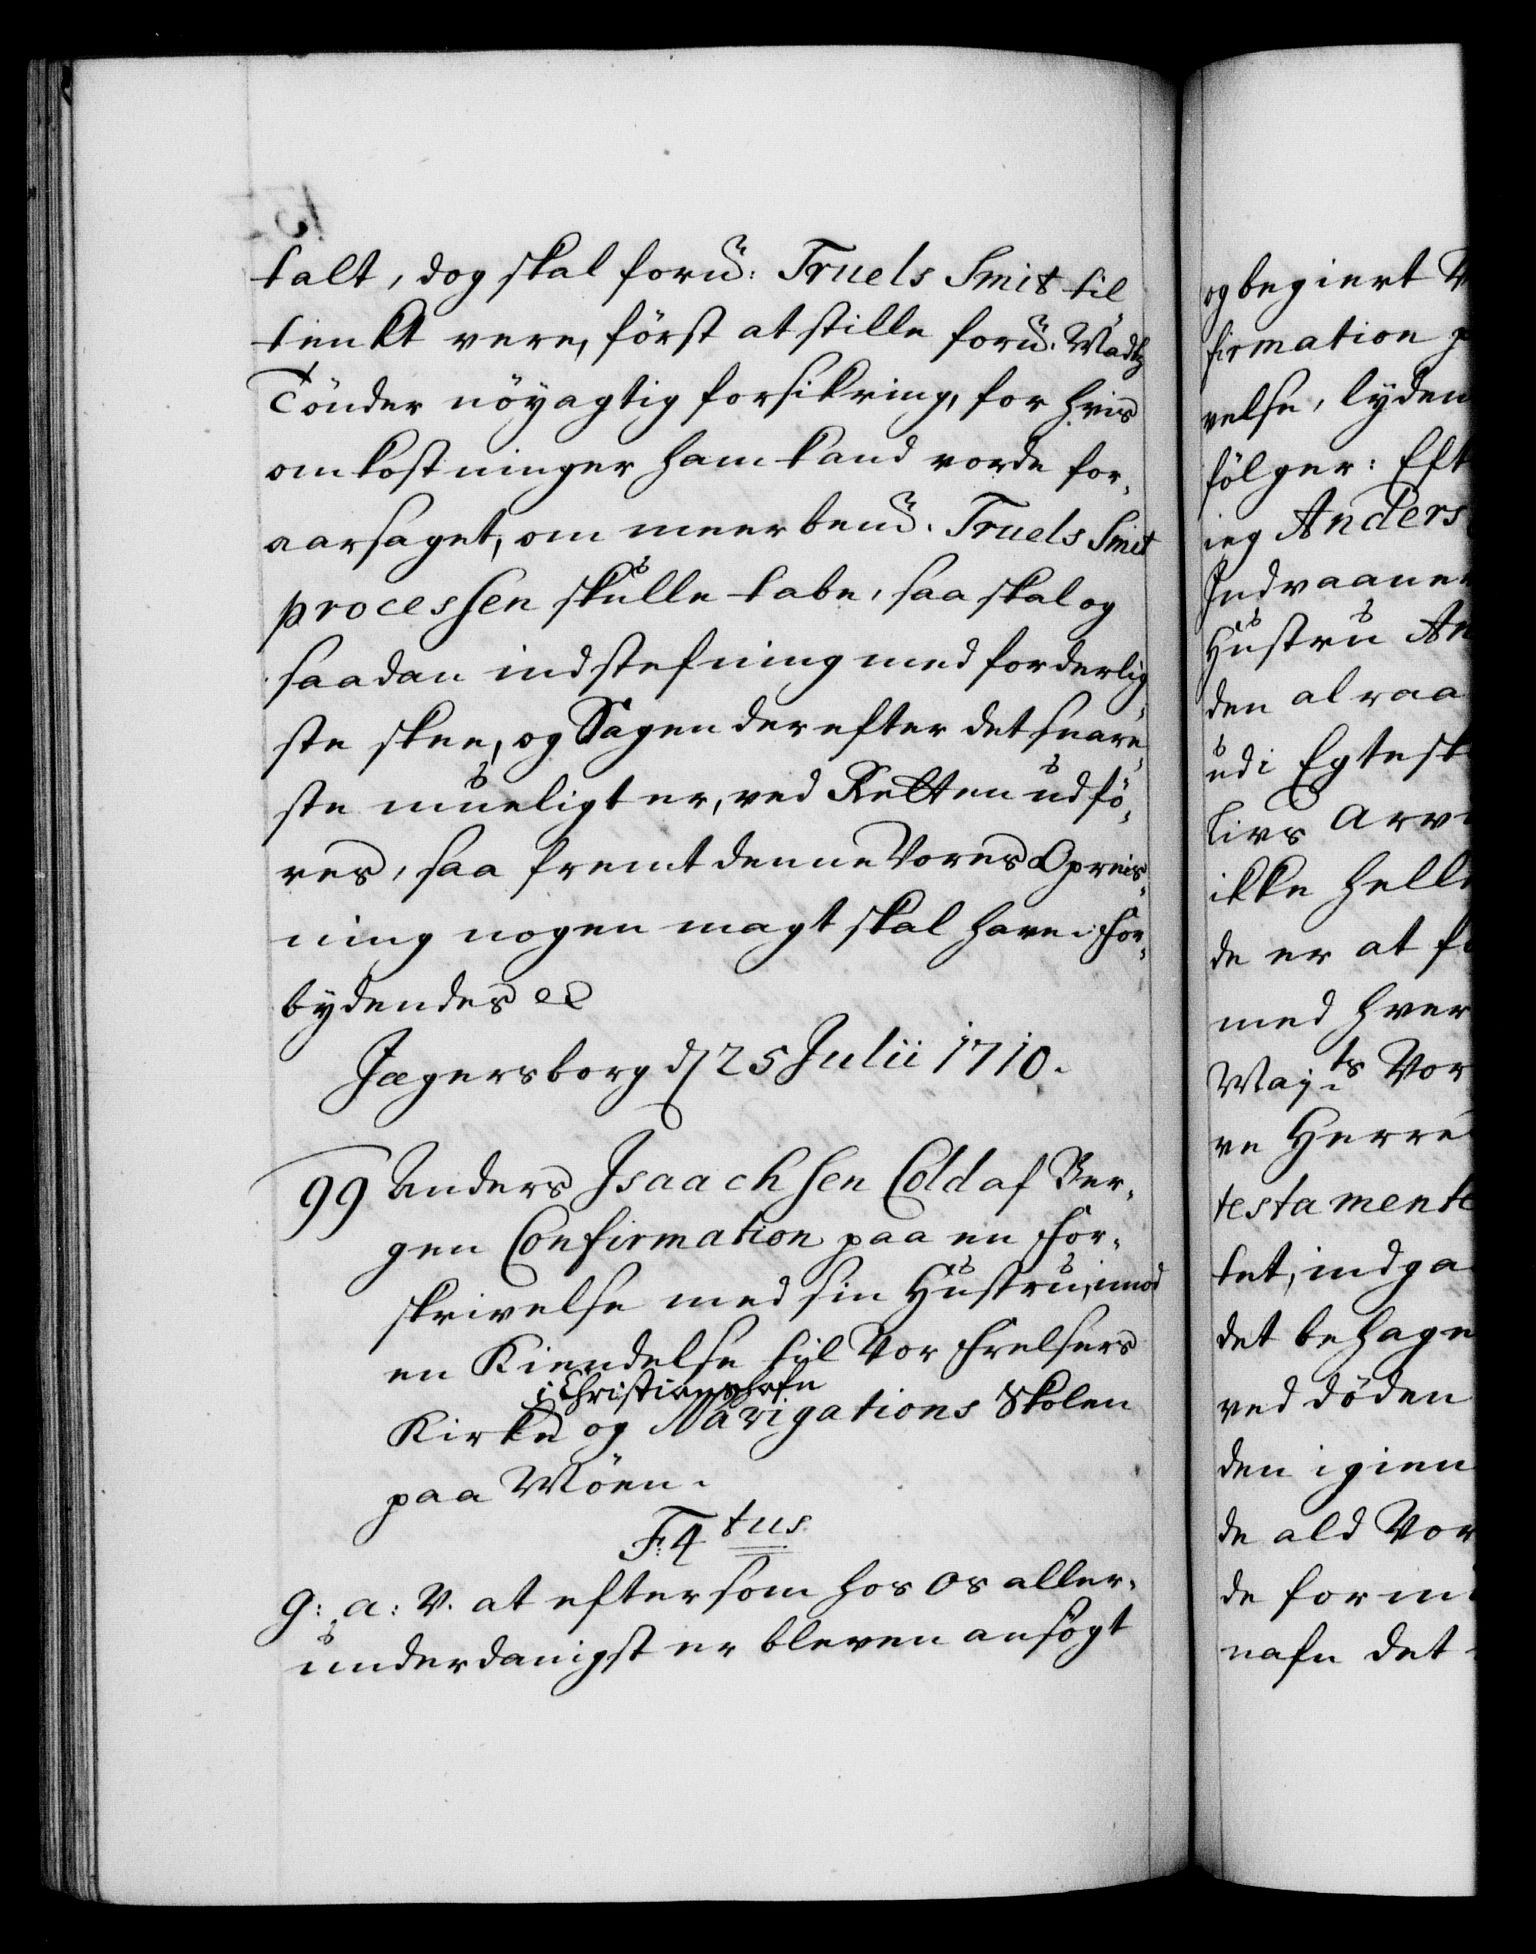 talt, dog skal forn: Truels Smit til
tienkt vere, först at stille forn: Madtz
Tönder nöyagtig forsikring, for hvis
omkostninger ham kand vorde for-
aarsaget, om meerbem: Truels Smit
processen skulle tabe, saa skal og
saadan indstefning med forderlig-
ste skee, og Sagen derefter det snare-
ste mueligt er, ved Retten udfö-
res, saa fremt denne Vores Opreis-
ning nogen magt skal have. For-
bydendes &c
Jægersborg d 25 Julii 1710.
99 Anders Isaachsen Cold af Ber-
gen Confirmation paa en For-
skrivelse med sin Hustru, imod
en Kiendelse til Vor Frelsers
i Christianshafn
Kirke og Navigations Skolen
paa Möen.
F: 4tus
G: a: V. at eftersom hos Os aller-
underdanigst er bleven ansögt
og begiert V
firmation p
velse, lyden
fölger: Eft
ieg Anders
Indvaaner
Hustru An
den al raa
udi Egtesk
livs Arvi
ikke helle
de er at f
med hver
Mayts Vor
re Herre
testamente
tet, indga
det behage
ved döden
den igien
de ald Vor
de formu
nafn det